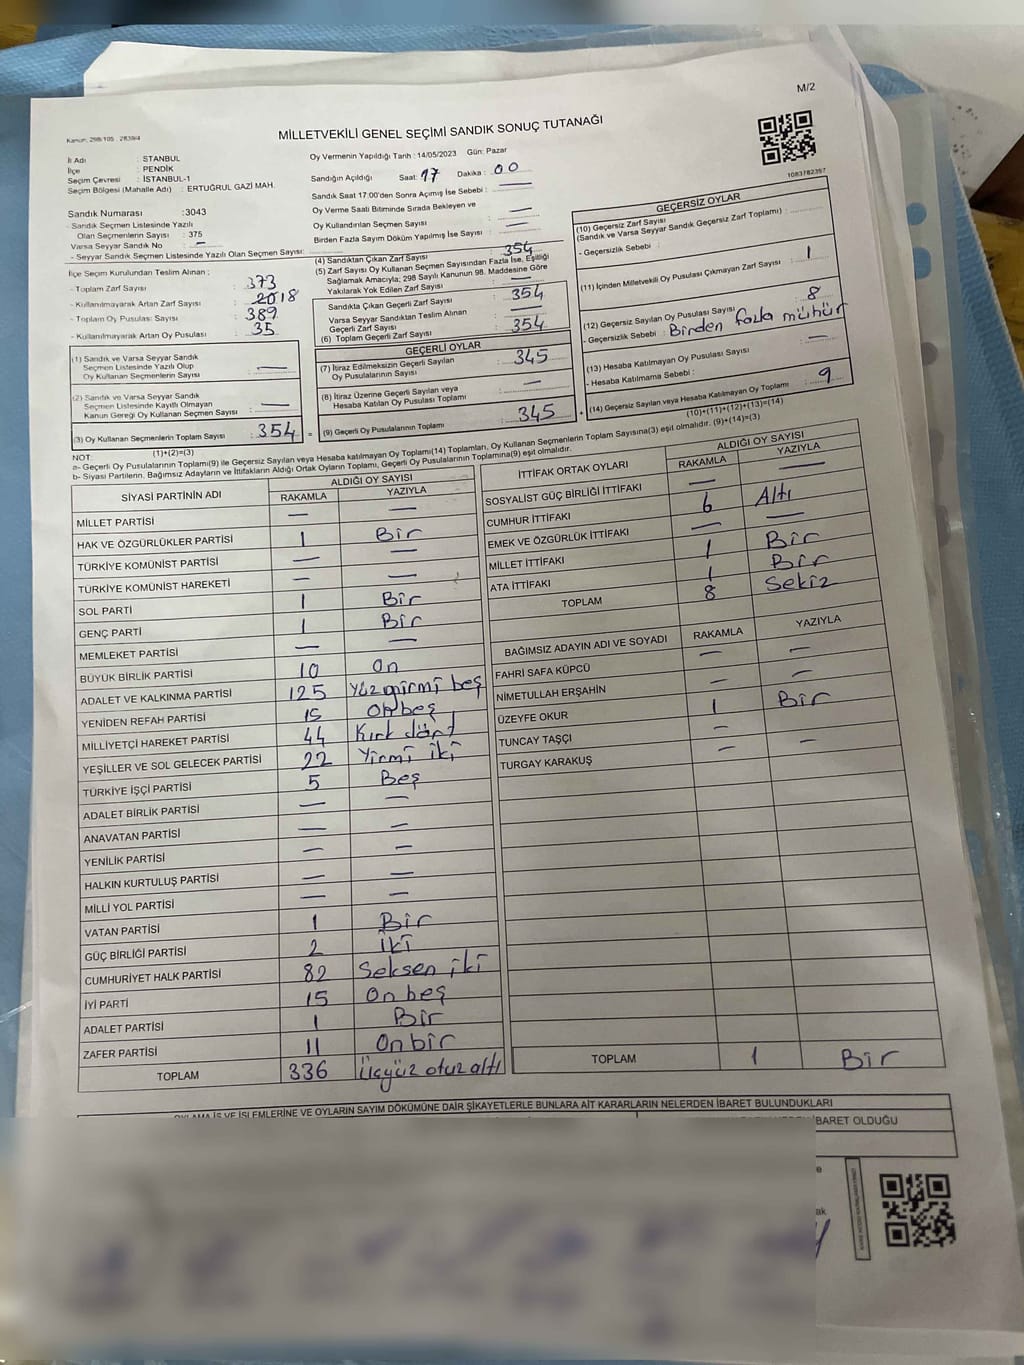 M/2
Kanun: 298/105 - 2839/4
MİLLETVEKİLİ GENEL SEÇİMİ SANDIK SONUÇ TUTANAĞI
1083782397
İl Adı : İSTANBUL
İlçe : PENDİK
Seçim Çevresi : İSTANBUL-1
Seçim Bölgesi (Mahalle Adı) : ERTUĞRUL GAZİ MAH.
Sandık Numarası :3043
- Sandık Seçmen Listesinde Yazılı
Olan Seçmenlerin Sayısı : 375
Varsa Seyyar Sandık No : —
- Seyyar Sandık Seçmen Listesinde Yazılı Olan Seçmen Sayısı:
Oy Vermenin Yapıldığı Tarih : 14/05/2023 Gün: Pazar
Sandığın Açıldığı Saat: 17 Dakika : 00
Sandık Saat 17:00'den Sonra Açımış İse Sebebi : —
Oy Verme Saati Bitiminde Sırada Bekleyen ve
Oy Kullandırılan Seçmen Sayısı : —
Birden Fazla Sayım Döküm Yapılmış İse Sayısı : —
İlçe Seçim Kurulundan Teslim Alınan ;
- Toplam Zarf Sayısı : 373
- Kullanılmayarak Artan Zarf Sayısı : 18
- Toplam Oy Pusulası Sayısı : 389
- Kullanılmayarak Artan Oy Pusulası : 35
(1) Sandık ve Varsa Seyyar Sandık
Seçmen Listesinde Yazılı Olup
Oy Kullanan Seçmenlerin Sayısı : —
(2) Sandık ve Varsa Seyyar Sandık
Seçmen Listesinde Kayıtlı Olmayan
Kanun Gereği Oy Kullanan Seçmen Sayısı : —
(3) Oy Kullanan Seçmenlerin Toplam Sayısı : 354
(1)+(2)=(3)
(4) Sandıktan Çıkan Zarf Sayısı : 354
(5) Zarf Sayısı Oy Kullanan Seçmen Sayısından Fazla İse, Eşitliği
Sağlamak Amacıyla; 298 Sayılı Kanunun 98. Maddesine Göre
Yakılarak Yok Edilen Zarf Sayısı : —
Sandıkta Çıkan Geçerli Zarf Sayısı : 354
Varsa Seyyar Sandıktan Teslim Alınan
Geçerli Zarf Sayısı : —
(6) Toplam Geçerli Zarf Sayısı : 354
GEÇERLİ OYLAR
(7) İtiraz Edilmeksizin Geçerli Sayılan
Oy Pusulalarının Sayısı : 345
(8) İtiraz Üzerine Geçerli Sayılan veya
Hesaba Katılan Oy Pusulası Toplamı : —
(9) Geçerli Oy Pusulalarının Toplamı : 345
GEÇERSİZ OYLAR
(10) Geçersiz Zarf Sayısı
(Sandık ve Varsa Seyyar Sandık Geçersiz Zarf Toplamı) :
- Geçersizlik Sebebi :
(11) İçinden Milletvekili Oy Pusulası Çıkmayan Zarf Sayısı : 1
(12) Geçersiz Sayılan Oy Pusulası Sayısı : 8
- Geçersizlik Sebebi : Birden fazla mühür
(13) Hesaba Katılmayan Oy Pusulası Sayısı : —
- Hesaba Katılmama Sebebi :
(14) Geçersiz Sayılan veya Hesaba Katılmayan Oy Toplamı : 9
(10)+(11)+(12)+(13)=(14)
NOT:
a- Geçerli Oy Pusulalarının Toplamı(9) ile Geçersiz Sayılan veya Hesaba katılmayan Oy Toplamı(14) Toplamları, Oy Kullanan Seçmenlerin Toplam Sayısına(3) eşit olmalıdır. (9)+(14)=(3)
b- Siyasi Partilerin, Bağımsız Adayların ve İttifakların Aldığı Ortak Oyların Toplamı, Geçerli Oy Pusulalarının Toplamına(9) eşit olmalıdır.
SİYASİ PARTİNİN ADI ALDIĞI OY SAYISI
RAKAMLA YAZIYLA
MİLLET PARTİSİ — —
HAK VE ÖZGÜRLÜKLER PARTİSİ 1 Bir
TÜRKİYE KOMÜNİST PARTİSİ — —
TÜRKİYE KOMÜNİST HAREKETİ — —
SOL PARTİ 1 Bir
GENÇ PARTİ 1 Bir
MEMLEKET PARTİSİ — —
BÜYÜK BİRLİK PARTİSİ 10 On
ADALET VE KALKINMA PARTİSİ 125 Yüz girmi beş
YENİDEN REFAH PARTİSİ 15 On beş
MİLLİYETÇİ HAREKET PARTİSİ 44 Kırk dört
YEŞİLLER VE SOL GELECEK PARTİSİ 22 Yirmi iki
TÜRKİYE İŞÇİ PARTİSİ 5 Beş
ADALET BİRLİK PARTİSİ — —
ANAVATAN PARTİSİ — —
YENİLİK PARTİSİ — —
HALKIN KURTULUŞ PARTİSİ — —
MİLLİ YOL PARTİSİ — —
VATAN PARTİSİ 1 Bir
GÜÇ BİRLİĞİ PARTİSİ 2 İki
CUMHURİYET HALK PARTİSİ 82 Seksen iki
İYİ PARTİ 15 On beş
ADALET PARTİSİ 1 Bir
ZAFER PARTİSİ 11 On bir
TOPLAM 336 Üçyüz otuz altı
İTTİFAK ORTAK OYLARI ALDIĞI OY SAYISI
RAKAMLA YAZIYLA
SOSYALİST GÜÇ BİRLİĞİ İTTİFAKI — —
CUMHUR İTTİFAKI 6 Altı
EMEK VE ÖZGÜRLÜK İTTİFAKI — —
MİLLET İTTİFAKI 1 Bir
ATA İTTİFAKI 1 Bir
TOPLAM 8 Sekiz
BAĞIMSIZ ADAYIN ADI VE SOYADI RAKAMLA YAZIYLA
FAHRİ SAFA KÜPCÜ — —
NİMETULLAH ERŞAHİN — —
ÜZEYFE OKUR 1 Bir
TUNCAY TAŞÇI — —
TURGAY KARAKUŞ — —
TOPLAM 1 Bir
OYLAMA İŞ VE İŞLEMLERİNE VE OYLARIN SAYIM DÖKÜMÜNE DAİR ŞİKAYETLERLE BUNLARA AİT KARARLARIN NELERDEN İBARET BULUNDUKLARI
İBARET OLDUĞU